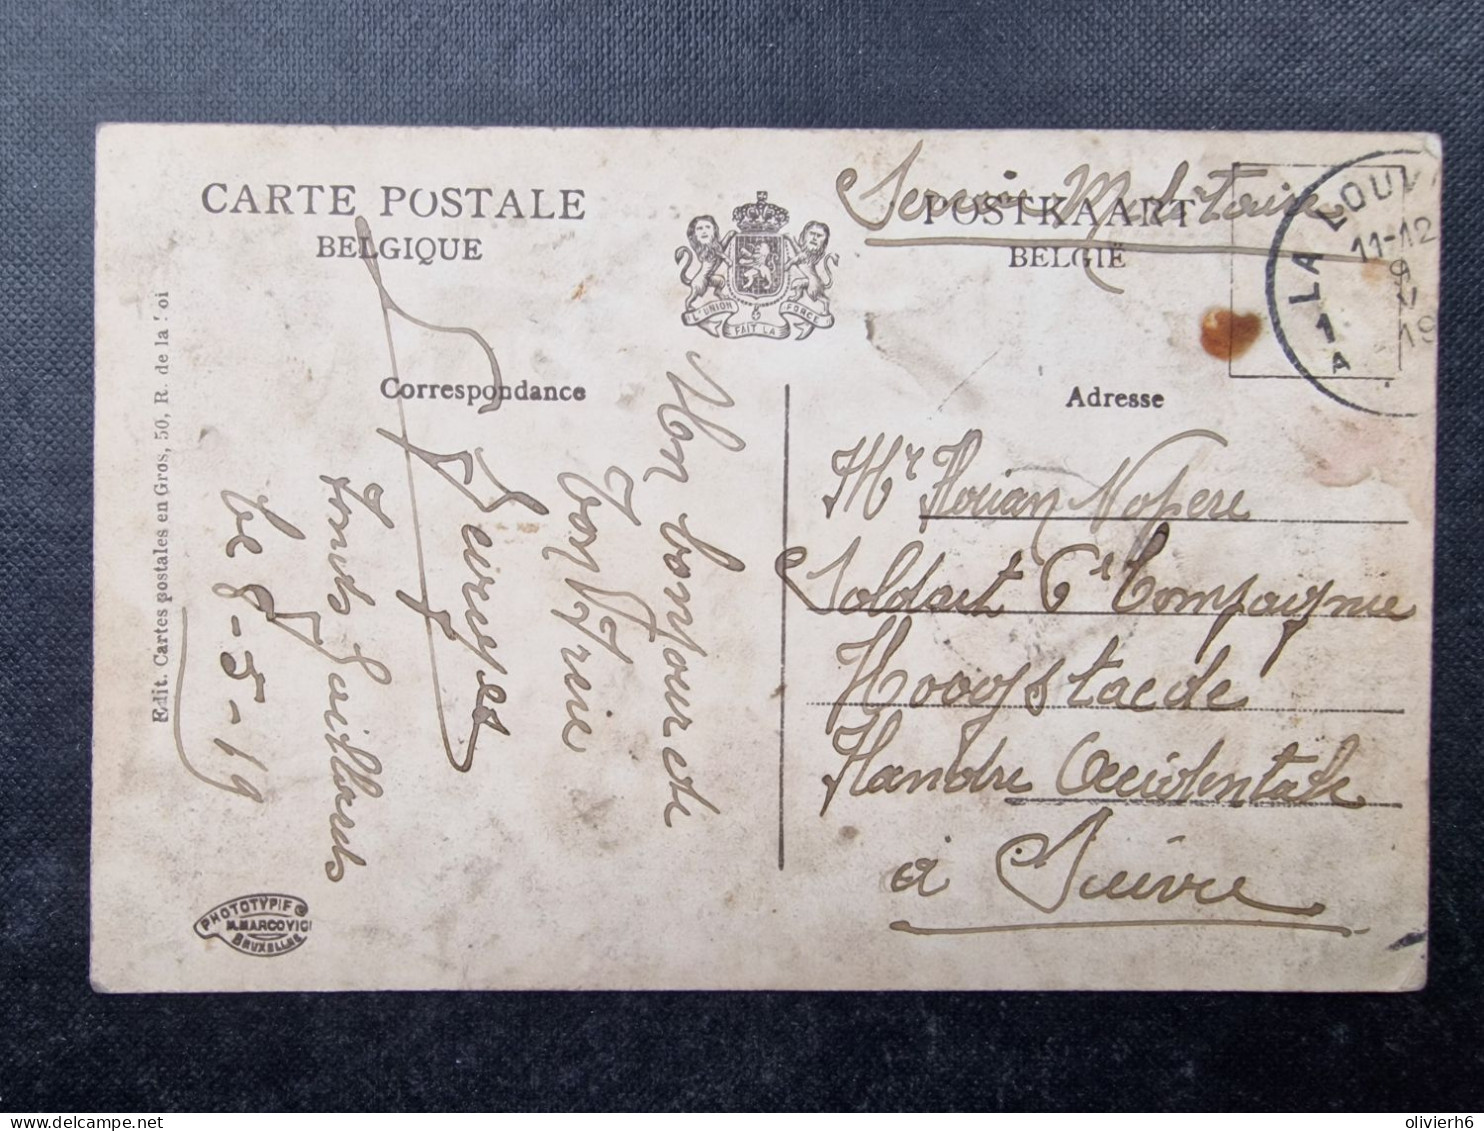 CARTE POSTALE
BELGIQUE
L'UNION FAIT LA FORCE
POSTKAART
BELGIË
Service Militaire
LA LOUV
11-12
9
V
19
1
A
Correspondance
Adresse
Mon bonjour de
ton frère
Georges
Fonds Gaillards
le 8-5-19
Mr Florian Nopere
Soldat 6e Compagnie
Hooystaede
Flandre Occidentale
à Suivre
Edit. Cartes postales en Gros, 50, R. de la Loi
PHOTOTYPIE
M. MARCOVICI
BRUXELLES
olivierh6